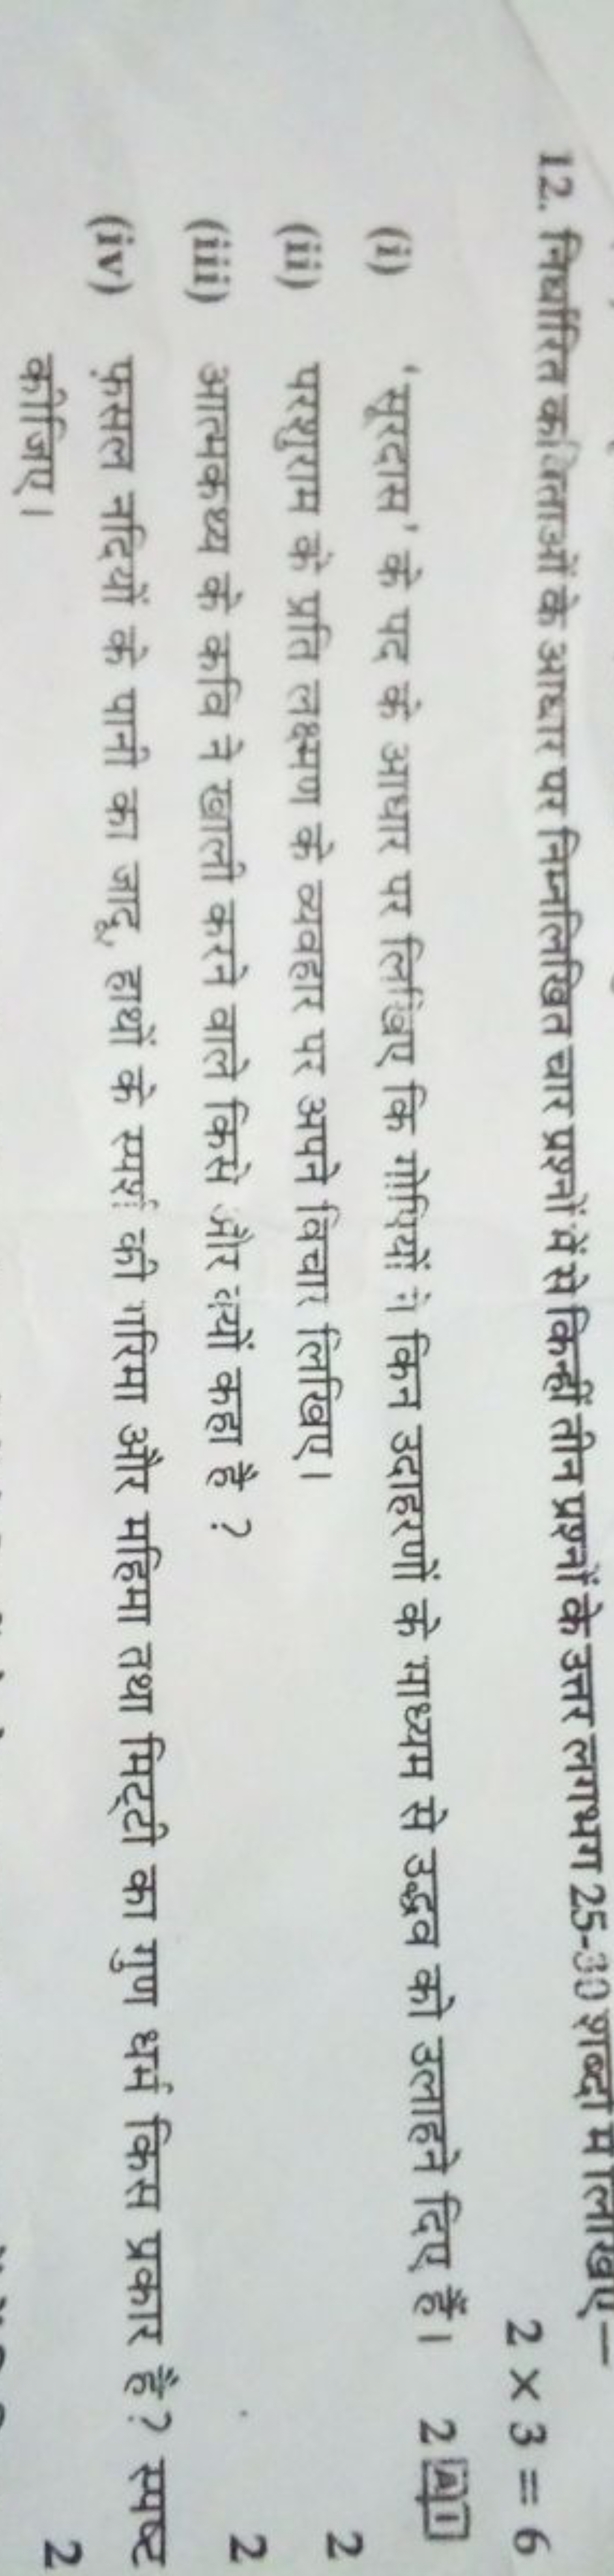 12. निर्धारित कविताओं के आधार पर निम्नलिखित चार प्रश्नों में से किन्हीं तीन प्रश्नों के उत्तर लगभग 25-30 शब्दों में लिखिए—
2 × 3 = 6
(i) 'सूरदास' के पद के आधार पर लिखिए कि गोपियों ने किन उदाहरणों के माध्यम से उद्धव को उलाहने दिए हैं। 2
(ii) परशुराम के प्रति लक्ष्मण के व्यवहार पर अपने विचार लिखिए। 2
(iii) आत्मकथ्य के कवि ने खाली करने वाले किसे और क्यों कहा है ? 2
(iv) फ़सल नदियों के पानी का जादू, हाथों के स्पर्श की गरिमा और महिमा तथा मिट्टी का गुण धर्म किस प्रकार है? स्पष्ट
कीजिए। 2